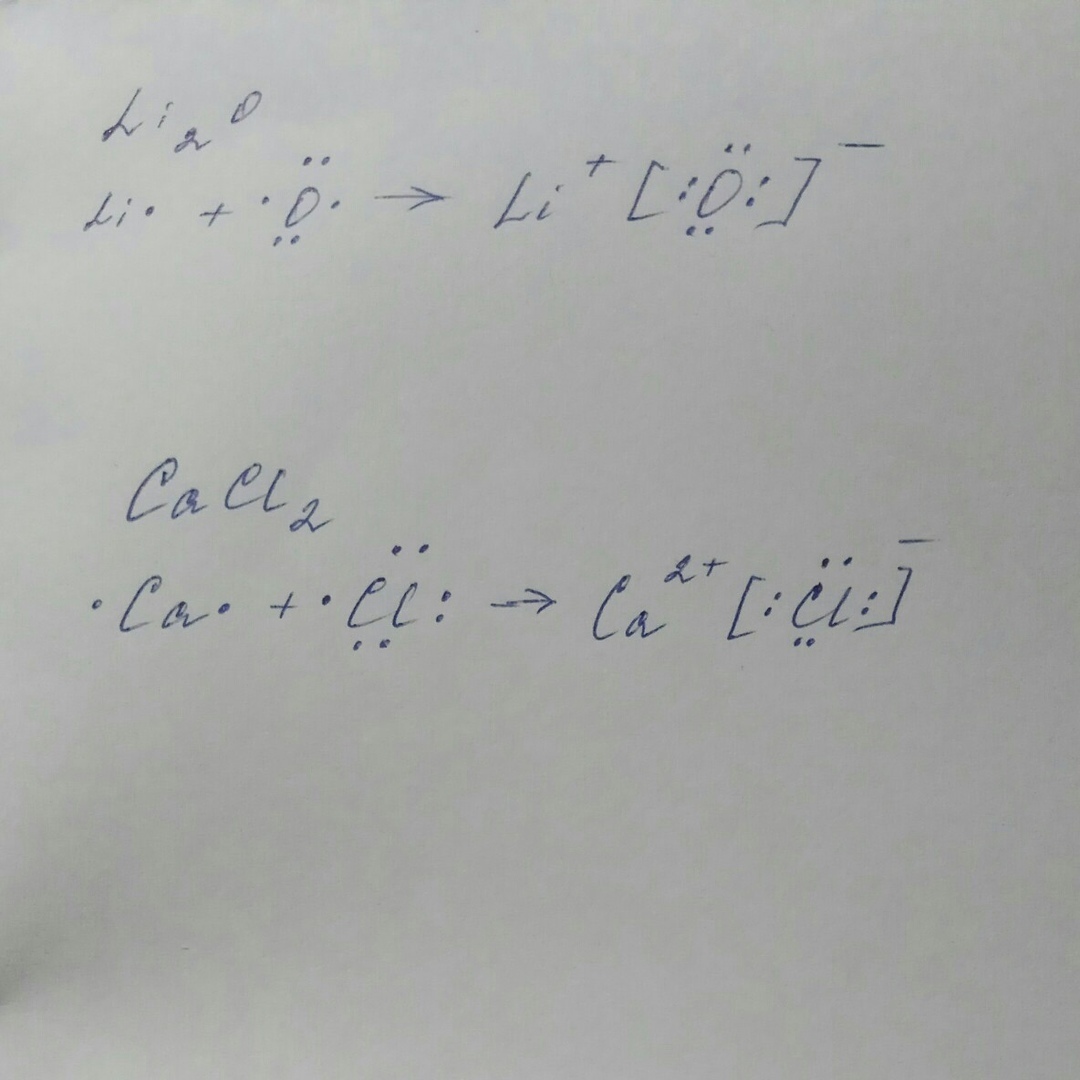 Li₂O
Li· + ·Ö̤· → Li⁺ [:Ö̤:]⁻
CaCl₂
·Ca· + ·C̤̈l: → Ca²⁺ [:C̤̈l:]⁻